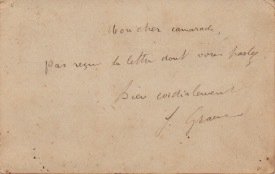 Mon cher camarade,
pas reçu la lettre dont vous parlez
bien cordialement
J. Grave